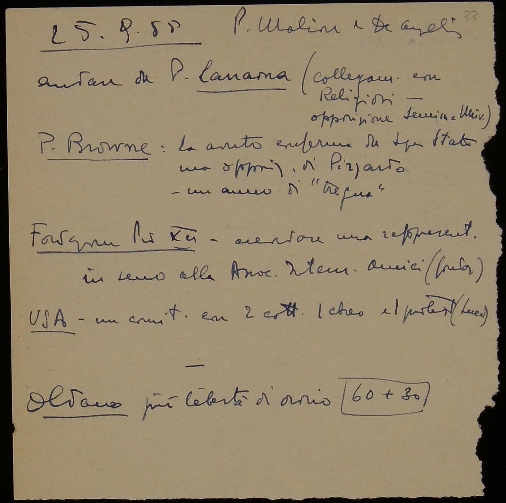 33
25.9.58 P. Molion e De Angelis
andare da P. Canarna (collegam. con
Religiosi —
opposizione Semin. e Univ.)
P. Browne: ha avuto conferma da Segr. Stato
ma opposiz. di Pizzardo
- un anno di "tregua"
Pio XII - una rappresent.
in seno alla Assoc. Intern. Amici
USA - un comit. con 2 catt. 1 ebreo e 1 protest
—
Oldano più libertà di orario 60 + 30